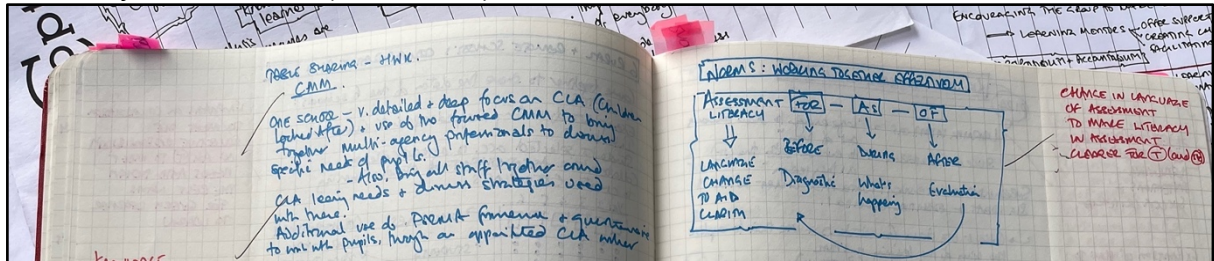 learner
are
ENCOURAGING THE GROUP TO
LEARNING MENTORS
OFFER SUPPORT
CREATING
FACILITATING
TABLE SHARING - HWK.
CMM.
ONE SCHOOL - v. detailed + deep focus on CLA (Children
Looked After) + use of two focused CMM to bring
together multi-agency professionals to discuss
specific needs of pupils.
Also, bring all staff together around
CLA learning needs + discuss strategies used
with these.
Additional use do PERMA framework + questionnaire
to work with pupils, through an appointed CLA mentor
NORMS: WORKING TOGETHER EFFECTIVELY
ASSESSMENT FOR - AS - OF
LITERACY
LANGUAGE BEFORE DURING AFTER
CHANGE Diagnostic What's Evaluation
TO AID happening
CLARITY
CHANGE IN LANGUAGE
OF ASSESSMENT
TO MAKE LITERACY
IN ASSESSMENT
CLEARER FOR T (and